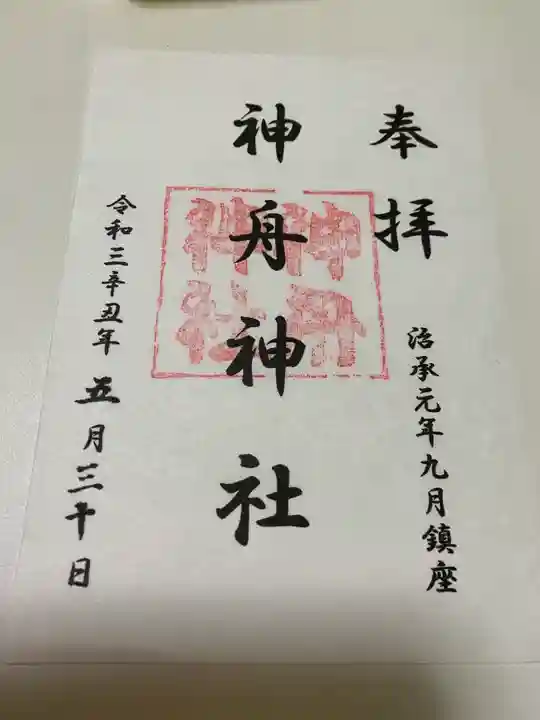 奉拝
治承元年九月鎮座
神舟神社
神舟
神社
令和三辛丑年五月三十日